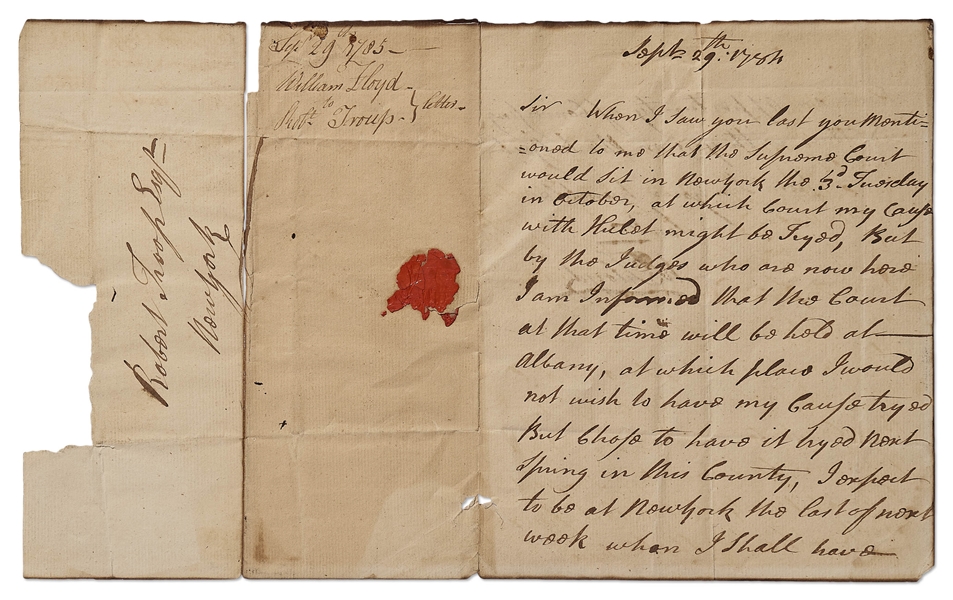 Robert Troop Esqr
New York
Sept 29th 1785
William Lloyd
to
Robt Troup
letter
Septr 29th: 1784
Sir When I Saw you last you Menti=
=oned to me that the Supreme Court
would Sit in New York the 3d Tuesday
in October, at which Court my Cause
with Hulet might be Tryed, But
by the Judges who are now here
I am Informed that the Court
at that time will be held at
Albany, at which place I would
not wish to have my Cause tryed
But Chose to have it tryed Next
Spring in this County, I expect
to be at New York the last of next
week when I Shall have